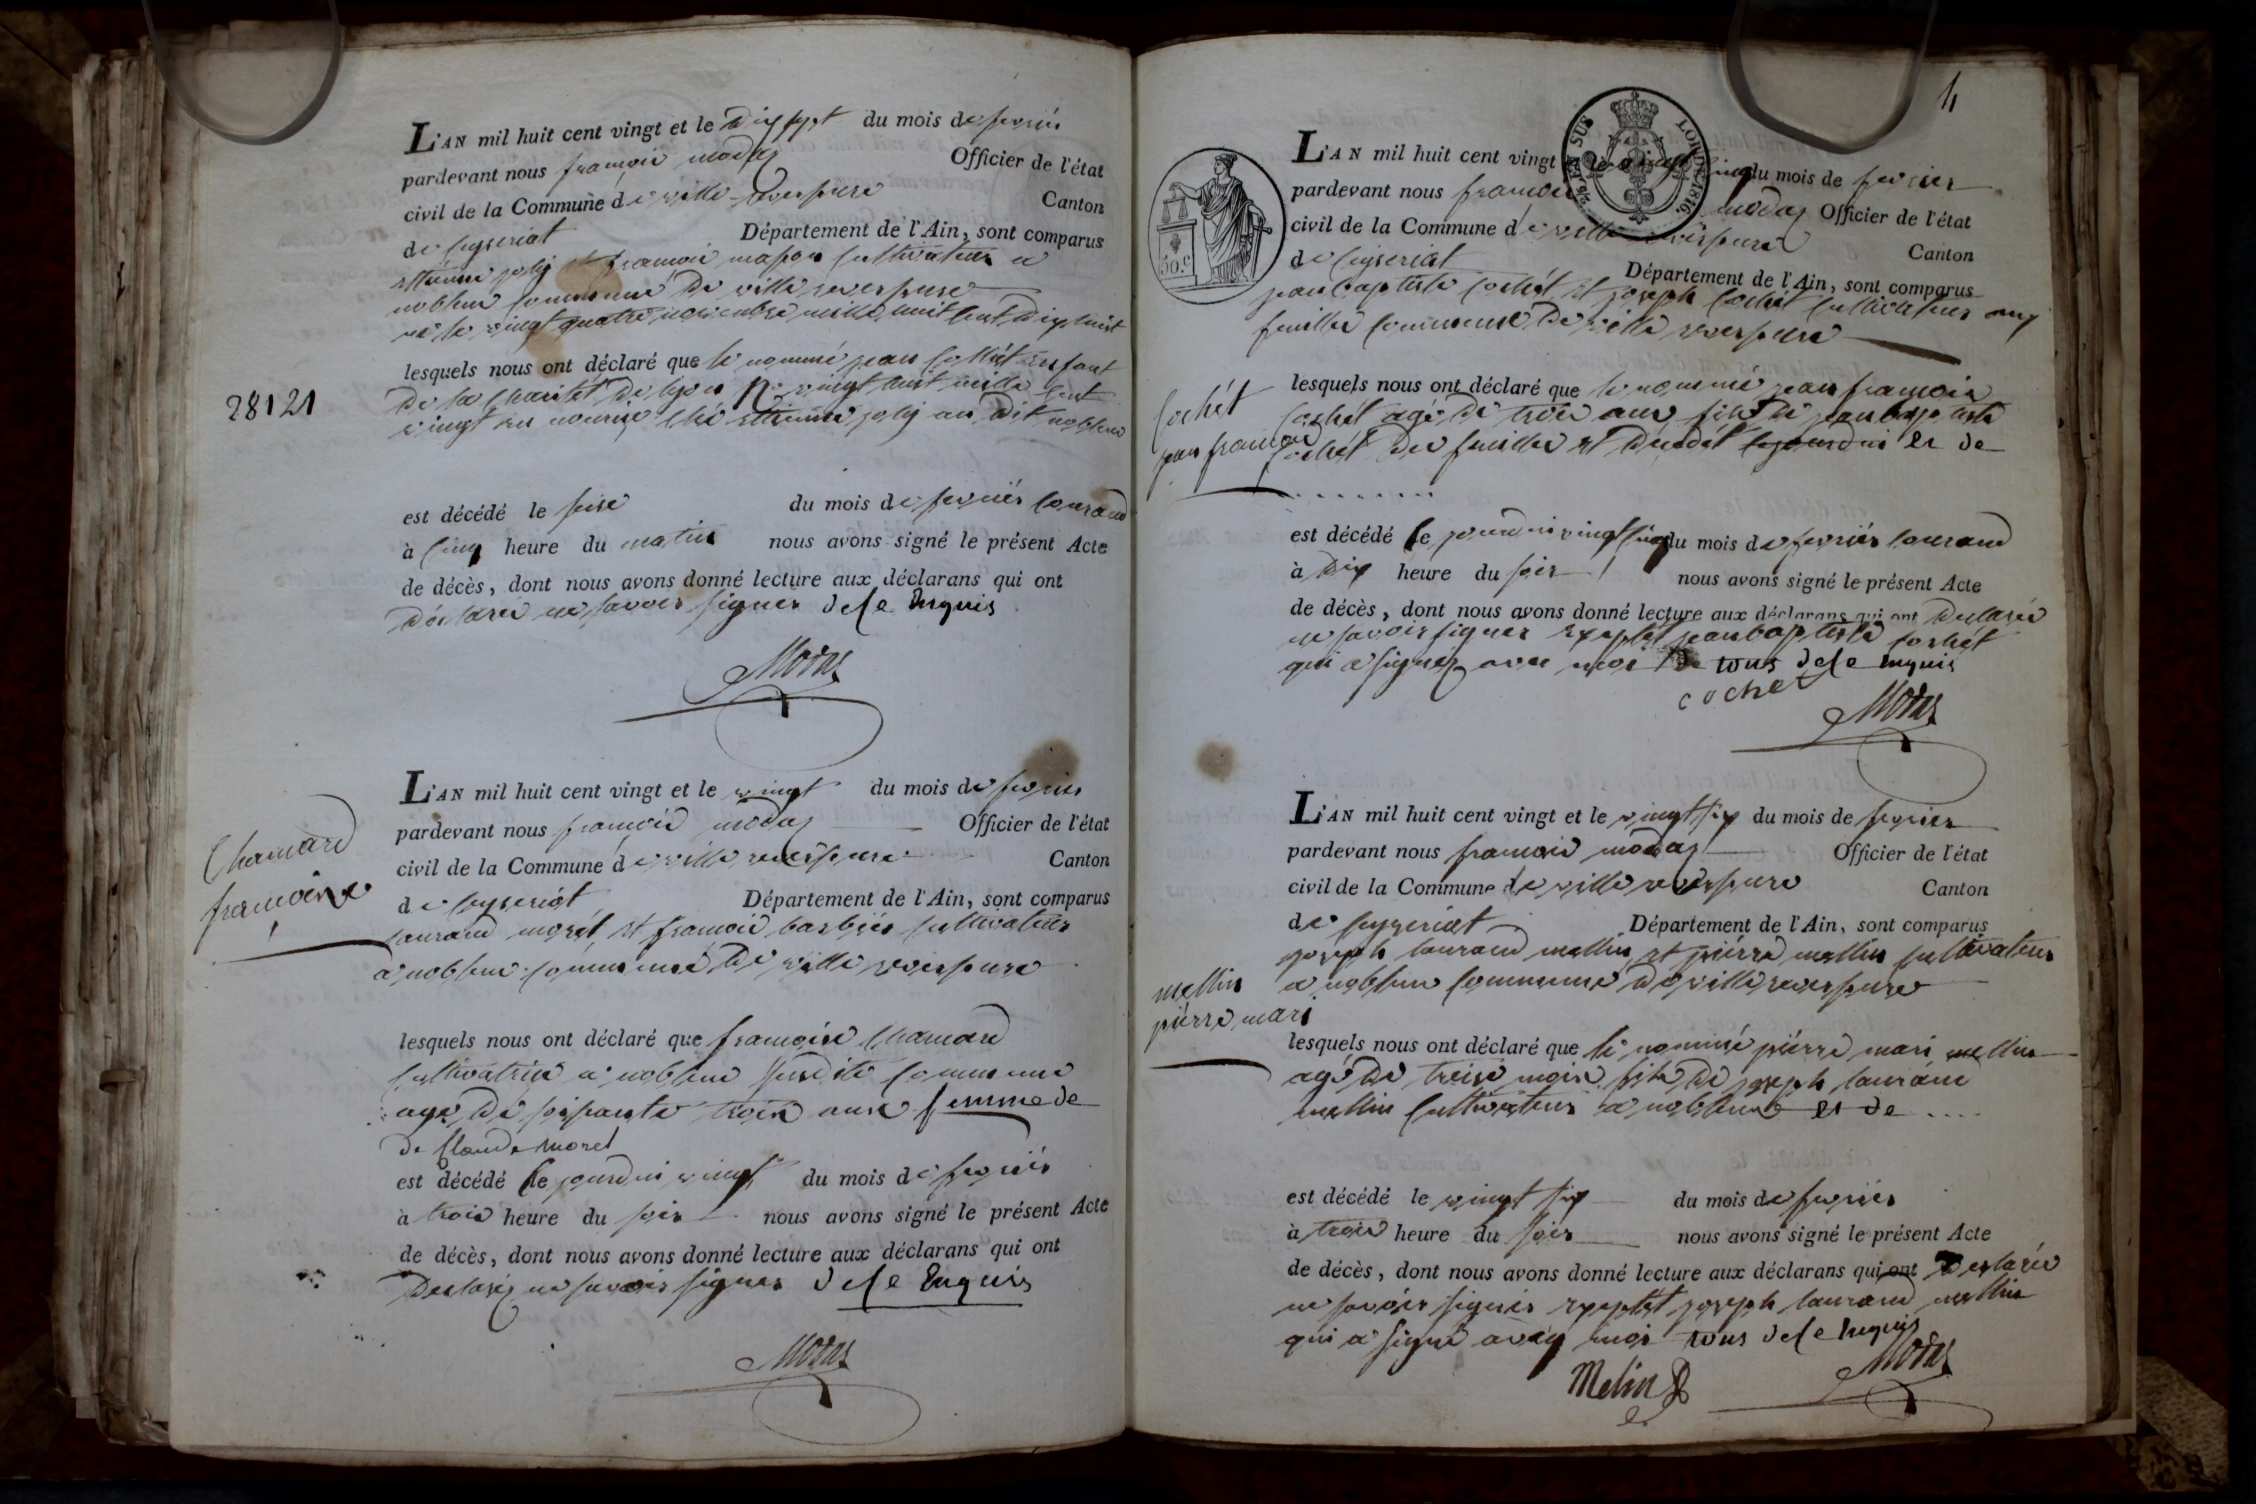 L'AN mil huit cent vingt et le Dix sept du mois de fevrier
pardevant nous françois modas Officier de l'état
civil de la Commune de ville reverseure
Canton
de Ceyseriat Département de l'Ain, sont comparus
ettienne joly et françois cultivateur a
nobleur Commune De ville reverseure
né le vingt quatre novembre mille huit Cent Dix huit
lesquels nous ont déclaré que le nommé jean Collet enfant
De la Charitét De lyon N.o vingt huit mille Cent
28121
vingt un nourise ché ettienne joly au Dit nobleur
est décédé le seise du mois de fevrier Courand
à Cinq heure du matin nous avons signé le présent Acte
de décès, dont nous avons donné lecture aux déclarans qui ont
Déclaré ne savoir signer de ce Enquis
Modas
L'AN mil huit cent vingt et le vingt du mois de fevrier
pardevant nous françois modas Officier de l'état
Chamard
françoise
civil de la Commune de ville reverseure Canton
de Ceyseriat Département de l'Ain, sont comparus
laurand morét et françois barbiér Cultivateur
a nobleur Commune De ville reverseure
lesquels nous ont déclaré que françoise Chamard
Cultivatrise a nobleur susdite Commune
age De soisante trois ans femme de
de Claude morel
est décédé Ce jourdui vingt du mois de fevriér
à trois heure du soir nous avons signé le présent Acte
de décès, dont nous avons donné lecture aux déclarans qui ont
Declaré ne savoir signer de ce Enquis
Modas
4
L'AN mil huit cent vingt et le vingt Cinq du mois de fevrier
LOI DE 1816.
50.c
pardevant nous françois modas Officier de l'état
civil de la Commune de ville reverseure
Canton
de Ceyseriat Département de l'Ain, sont comparus
jean baptiste Cochét et joseph Cochét Cultivateur aux
feuilles Commune De ville reverseure
lesquels nous ont déclaré que le nommé jean françois
Cochét
jean françois
Cochét agé De trois ans fils De jean baptiste
Cochét Des feuilles et Dudét Cejourdui et de
est décédé Ce jourdui vingt Cinq du mois de fevriér Courand
à Dix heure du soir nous avons signé le présent Acte
de décès, dont nous avons donné lecture aux déclarans qui ont Declaré
ne savoir signer exeptét jean baptiste Cochét
qui a signér avec moi De tous de ce enquis
cochet
Modas
L'AN mil huit cent vingt et le vingt six du mois de fevrier
pardevant nous françois modas Officier de l'état
civil de la Commune de ville reverseure Canton
de Ceyzeriat Département de l'Ain, sont comparus
joseph laurand mellin et piérre mellin Cultivateur
a nobleur Commune De ville reverseure
mellin
piérre mari
lesquels nous ont déclaré que le nommé piérre mari mellin
agé De treise mois fils De joseph laurand
mellin Cultivateur a nobleur et de ....
est décédé le vingt six du mois de fevriér
à trois heure du soir nous avons signé le présent Acte
de décès, dont nous avons donné lecture aux déclarans qui ont Declaré
ne savoir signér exeptét joseph laurand mellin
qui a signé avec moi tous de ce enquis
Melin
Modas